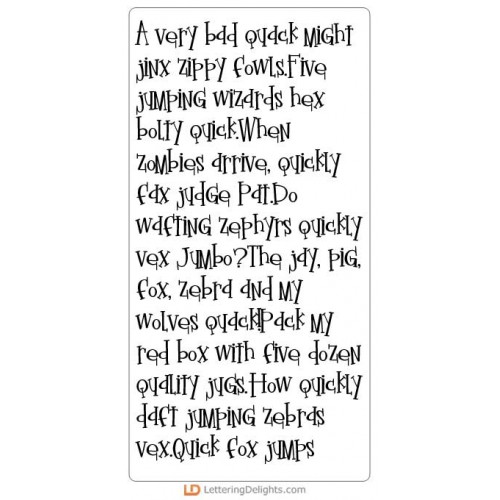 A very bad quack might
jinx zippy fowls.Five
jumping wizards hex
bolty quick.When
zombies arrive, quickly
fax judge Pat.Do
wafting zephyrs quickly
vex Jumbo?The jay, pig,
fox, zebra and my
wolves quack!Pack my
red box with five dozen
quality jugs.How quickly
daft jumping zebras
vex.Quick fox jumps
LD LetteringDelights.com